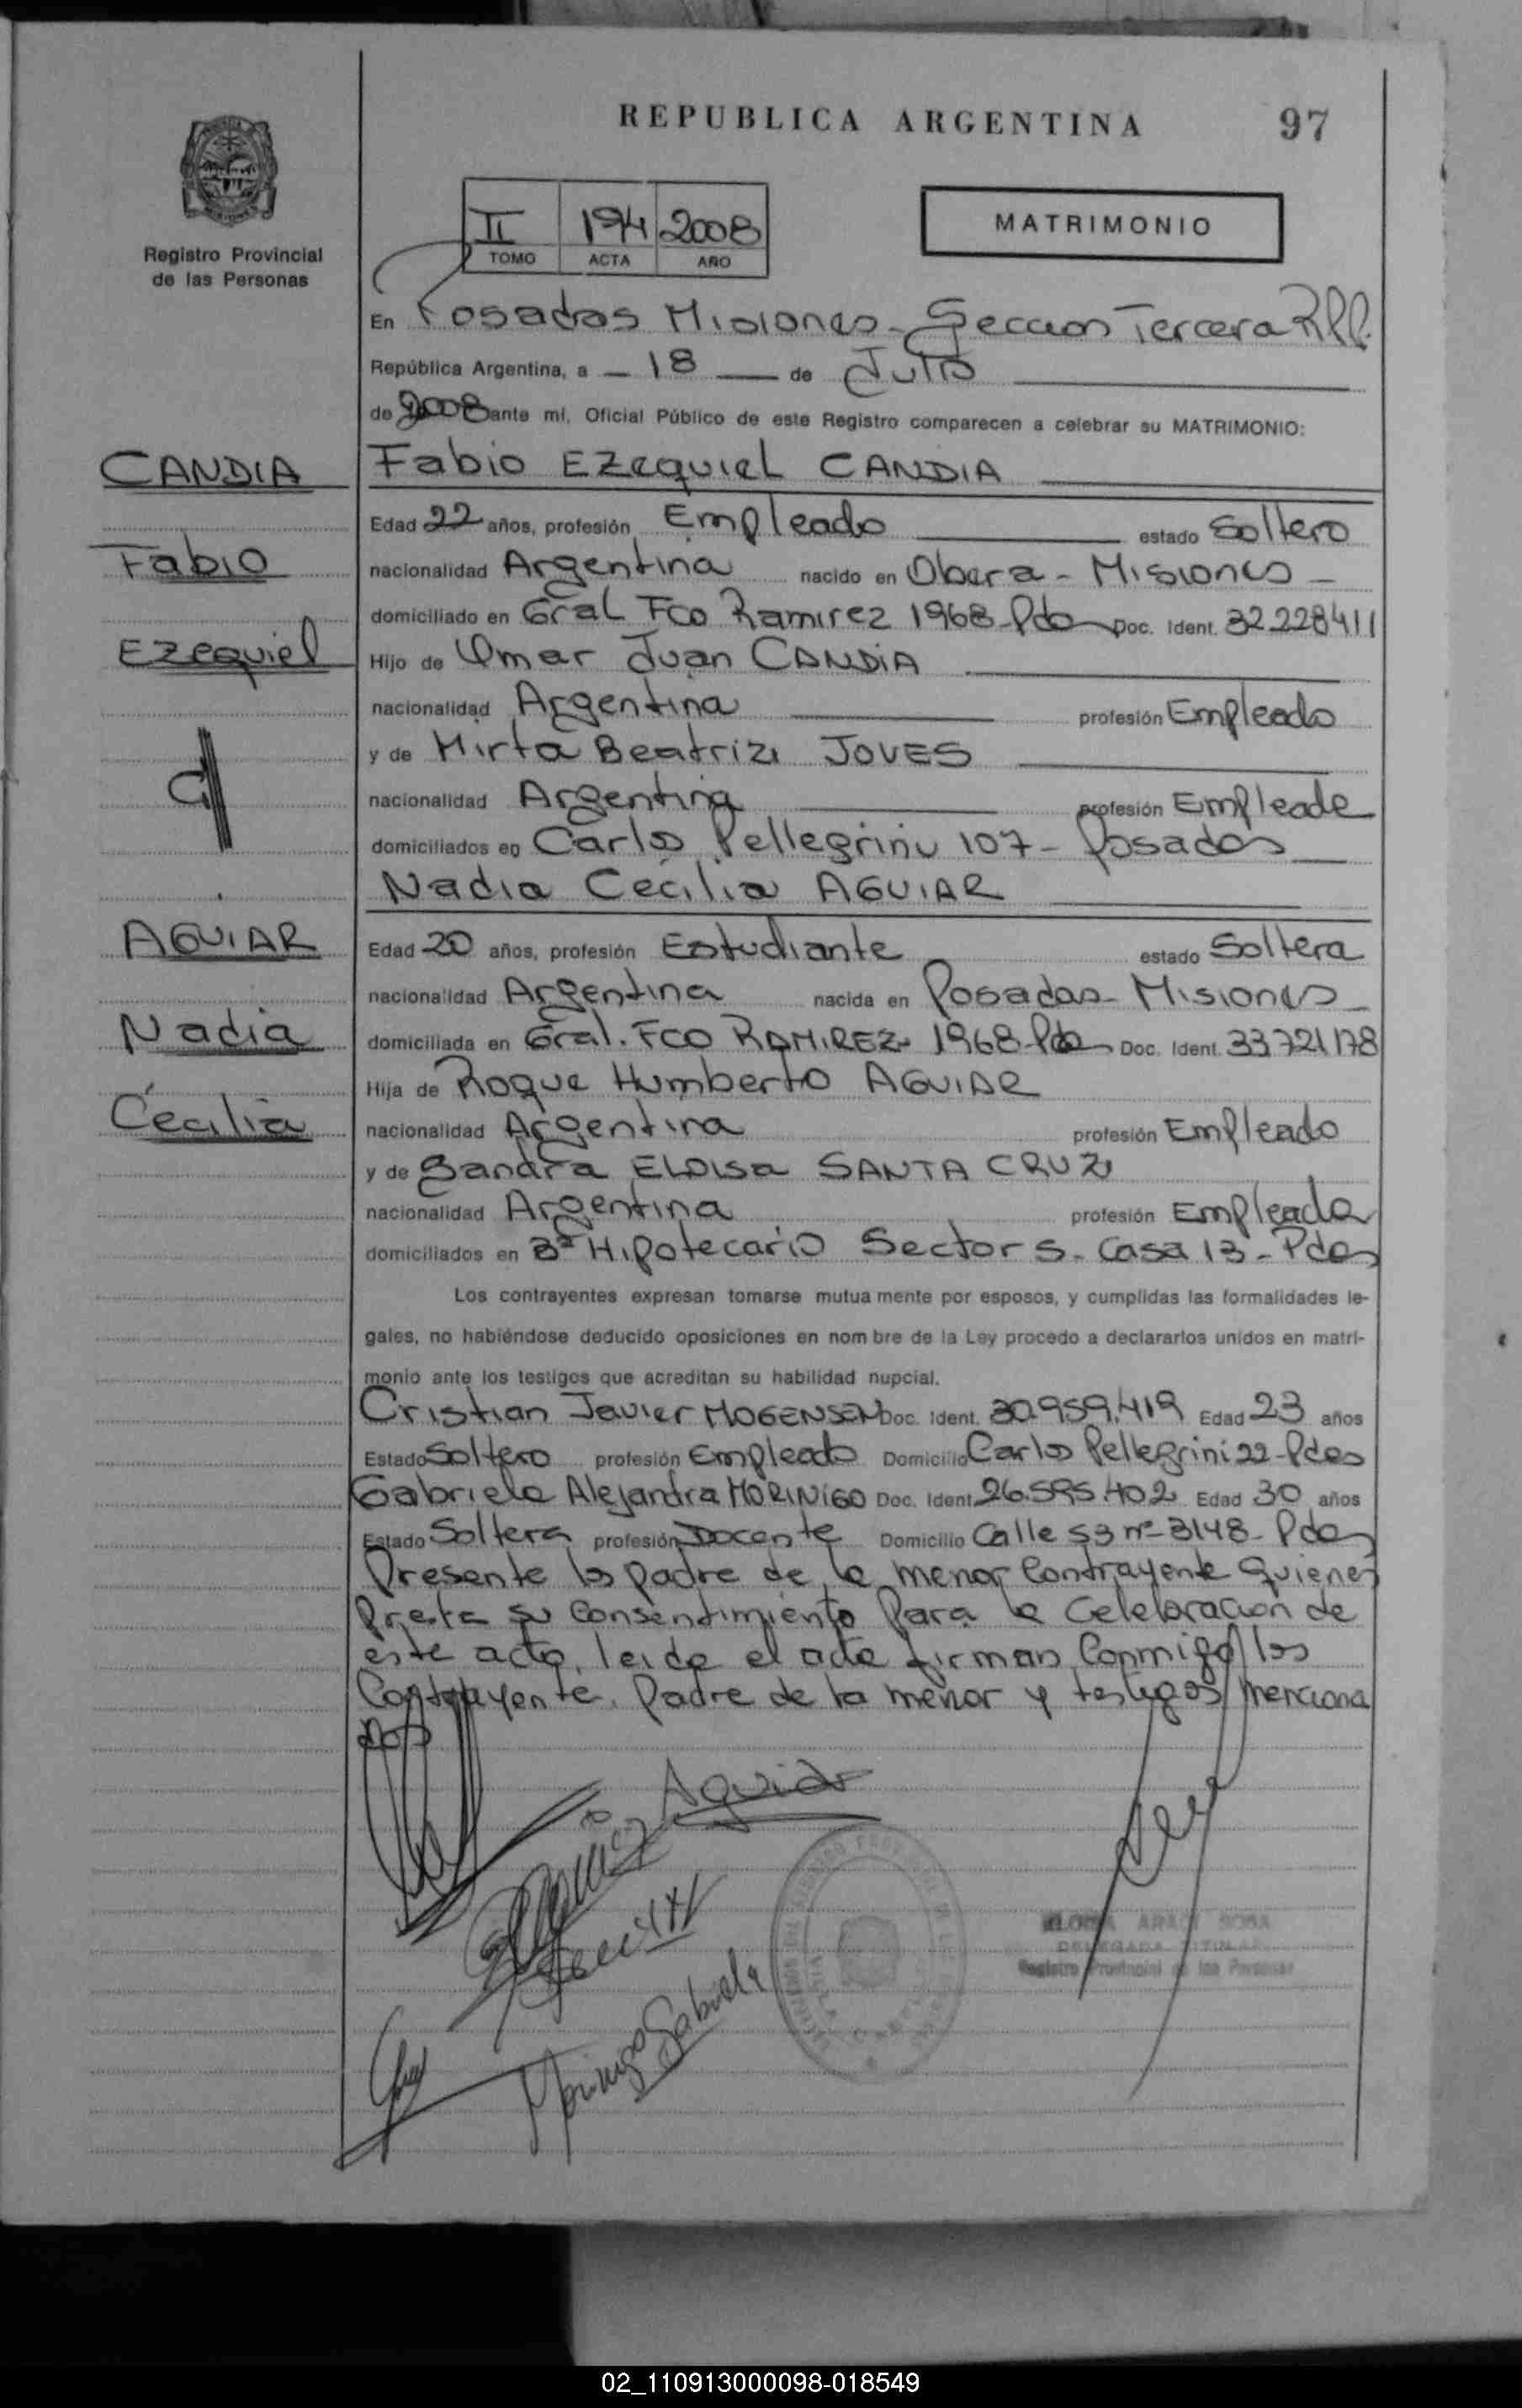 REPUBLICA ARGENTINA 97
Registro Provincial
de las Personas
II 194 2008
TOMO ACTA AÑO
MATRIMONIO
En Posadas Misiones - Seccion Tercera RPP.
República Argentina, a - 18 - de Julio
de 2008 ante mí, Oficial Público de este Registro comparecen a celebrar su MATRIMONIO:
CANDIA
Fabio
Ezequiel
AGUIAR
Nadia
Cecilia
Fabio Ezequiel CANDIA
Edad 22 años, profesión Empleado estado Soltero
nacionalidad Argentina nacido en Obera - Misiones -
domiciliado en Gral Fco Ramirez 1968 - Pdas Doc. Ident. 32.228411
Hijo de Omar Juan CANDIA
nacionalidad Argentina profesión Empleado
y de Mirta Beatriz JOVES
nacionalidad Argentina profesión Empleada
domiciliados en Carlos Pellegrini 107 - Posadas
Nadia Cecilia AGUIAR
Edad 20 años, profesión Estudiante estado Soltera
nacionalidad Argentina nacida en Posadas - Misiones
domiciliada en Gral. FCO RAMIREZ 1968 - Pdas Doc. Ident. 33.721.178
Hija de Roque Humberto AGUIAR
nacionalidad Argentina profesión Empleado
y de Sandra ELOISA SANTA CRUZ
nacionalidad Argentina profesión Empleada
domiciliados en Bº Hipotecario Sector 5 - Casa 13 - Pdas
Los contrayentes expresan tomarse mutua mente por esposos, y cumplidas las formalidades le-
gales, no habiéndose deducido oposiciones en nom bre de la Ley procedo a declararlos unidos en matri-
monio ante los testigos que acreditan su habilidad nupcial.
Cristian Javier MOGENSEN Doc. Ident. 30.959.419 Edad 23 años
Estado Soltero profesión Empleado Domicilio Carlos Pellegrini 22 - Pdas
Gabriela Alejandra MORINIGO Doc. Ident. 26.595.402 Edad 30 años
Estado Soltera profesión Docente Domicilio Calle 53 nº 3148 - Pdas
Presente los padre de la menor Contrayente quienes
Presta su Consentimiento Para la Celebracion de
este acto, leida el acta firman Conmigo los
Contrayente, Padre de la menor y testigos menciona
dos
Aguiar
Morinigo Gabriela
DELEGADA TITULAR
Registro Provincial de las Personas
02_110913000098-018549